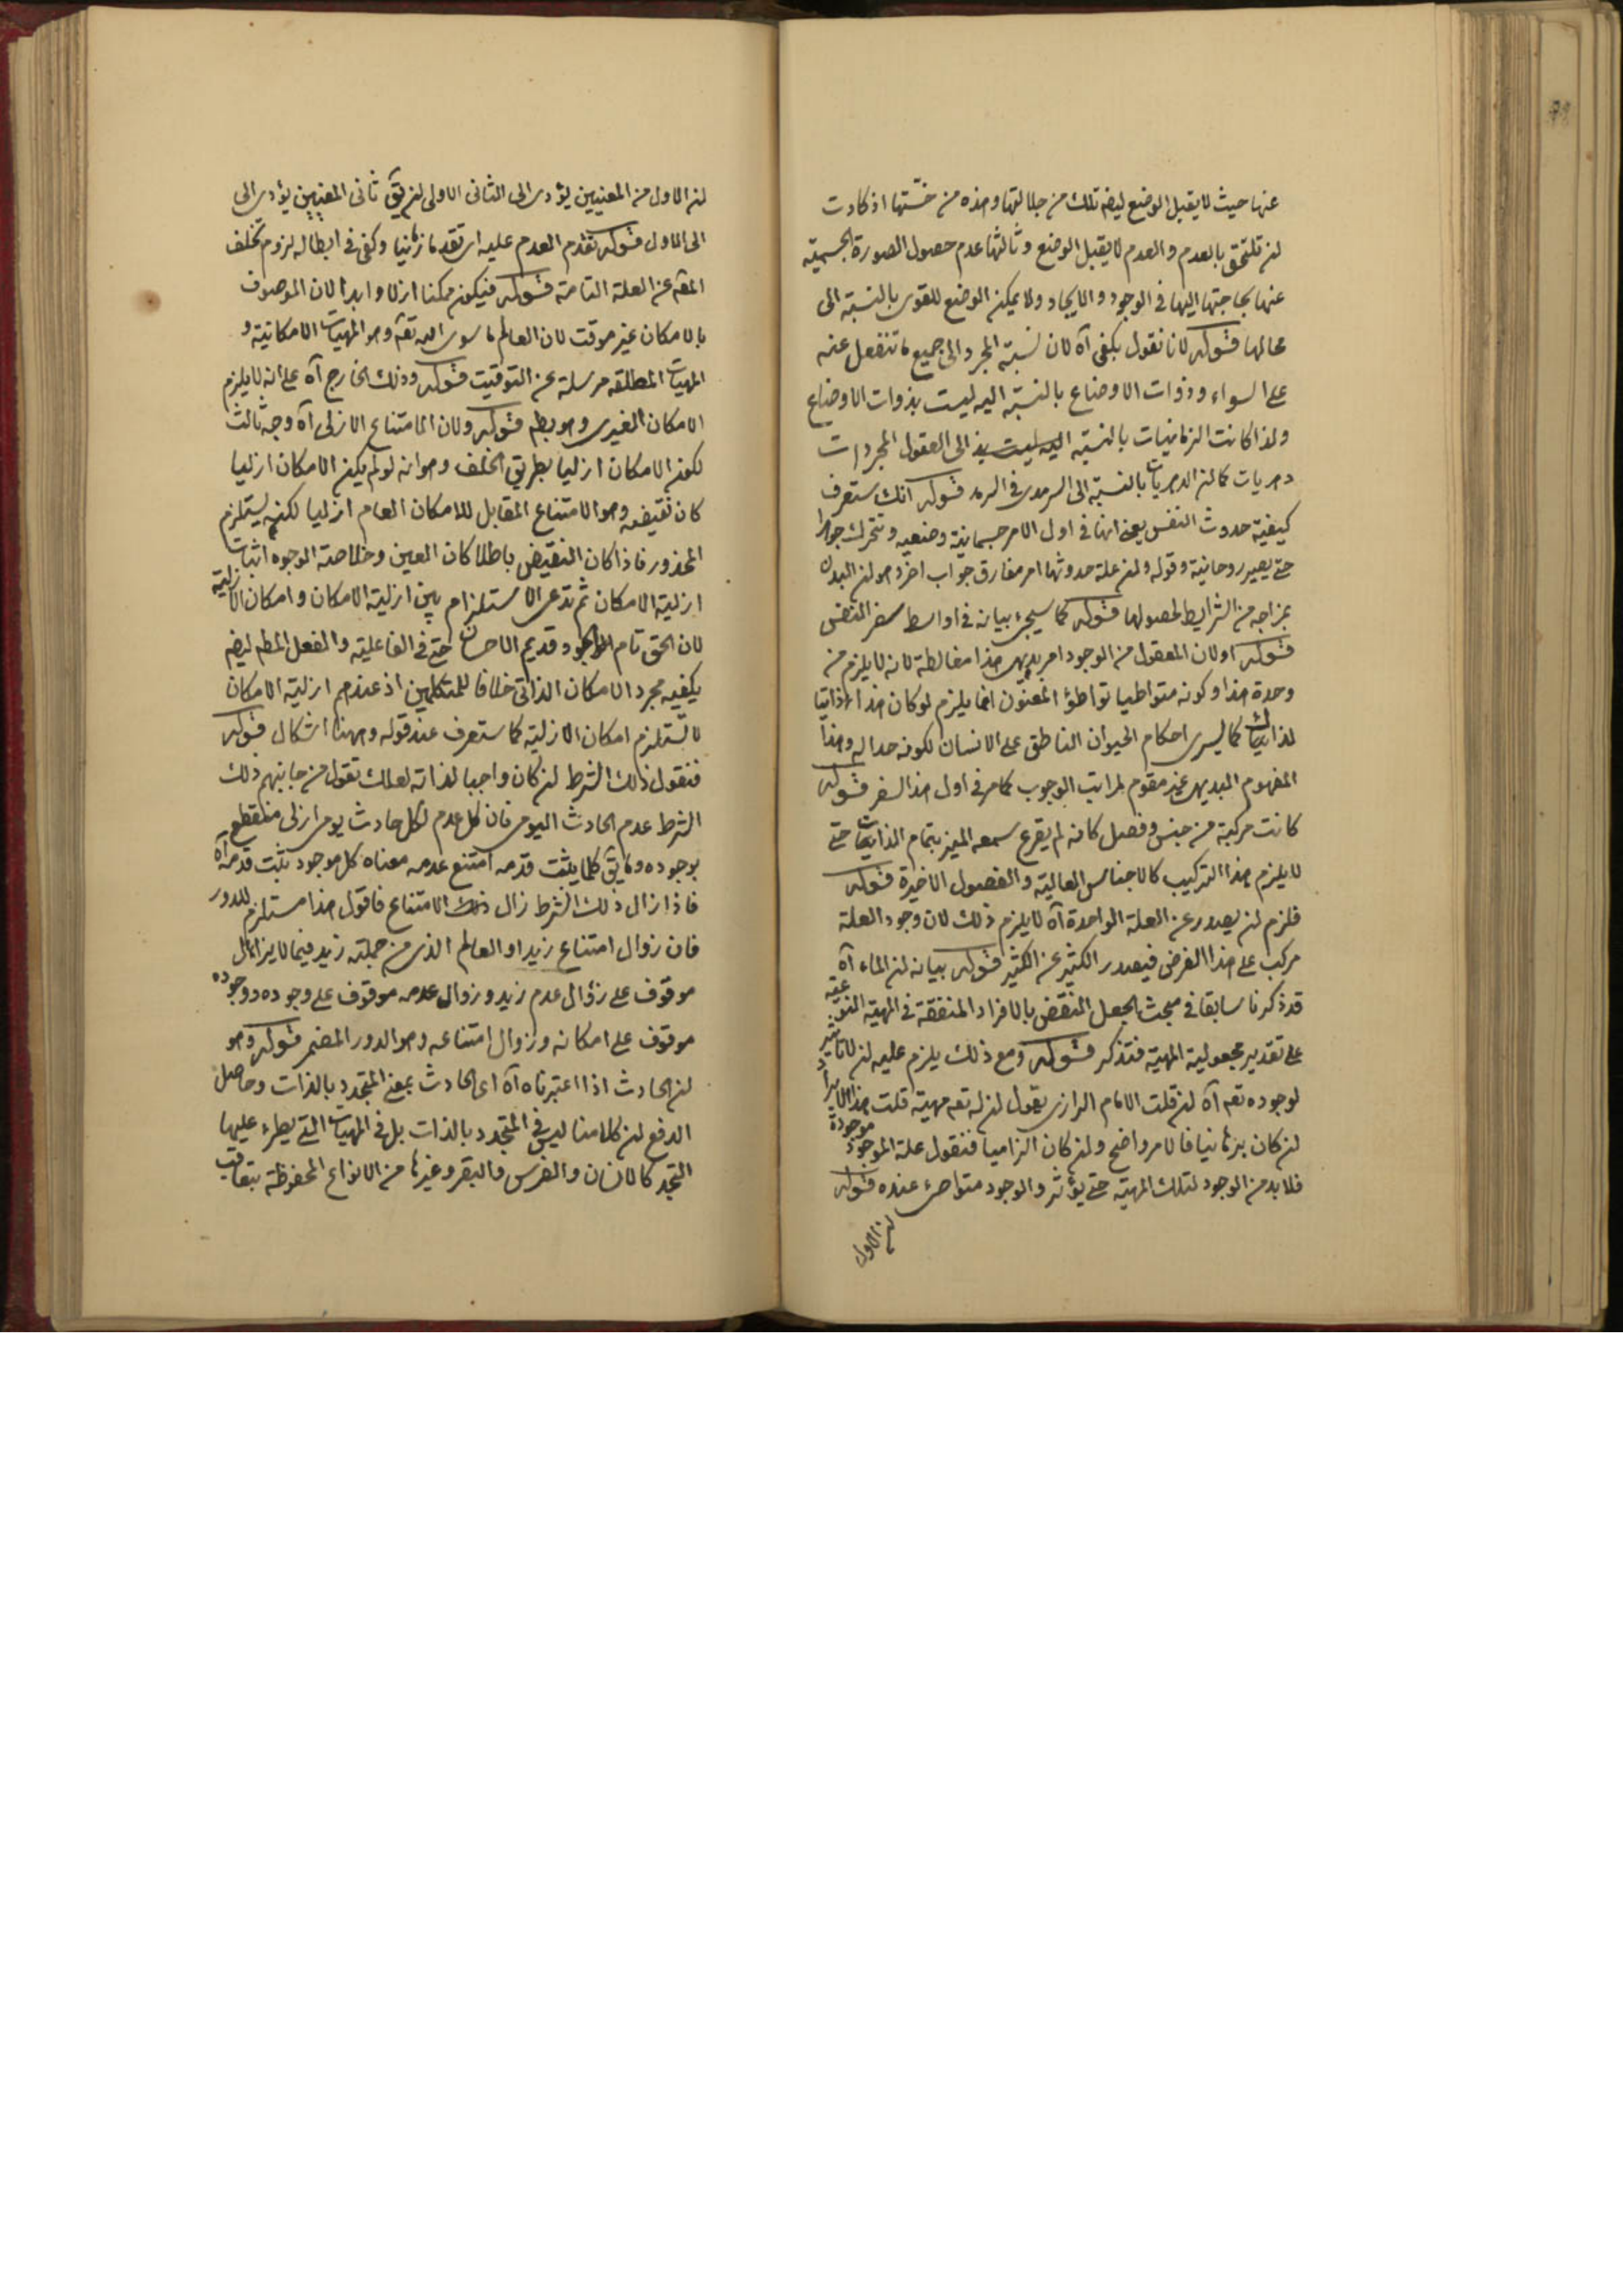 عنها حيث لا يقبل الوضع ليضه تلك من جلالتها وهذه من خستها اذ كادت
لن تلتحق بالعدم والعدم لا يقبل الوضع وثالثها عدم حصول الصورة الجسمية
عنها بحاجتها اليها في الوجود والايجاد ولا يمكن الوضع للقوى بالنسبة الى
محالها قوله لانا نقول يكفى آه لان نسبة المجرد الى جميع ما تنفعل عنه
على السواء وذوات الاوضاع بالنسبة اليه ليست بذوات الاوضاع
ولذا كانت الزمانيات بالنسبة الى العقول المجردات
دهريات كما لن الدهريات بالنسبة الى السرمدى في السرمد قوله انك ستعرف
كيفية حدوث النفس يعنى انها في اول الامر جسمانية وضعيه وتتحرك جوهرا
حتى يصير روحانية وقوله ولن علة حدوثها امر مفارق جواب اخر وهو لن البدن
بمزاجه من الشرايط لحصولها قوله كما سيجئ بيانه في اواسط سفر النفس
قوله اولان المعقول من الوجود امر بديهى هذا مغالطة لانه لا يلزم من
وحدة هذا وكونه متواطيا تواطؤ المعنون انما يلزم لو كان هذا ذاتيا
لذاك كما ليسرى احكام الحيوان الناطق على الانسان لكونه حدا له وهذا
المفهوم البديهى غير مقوم لمراتب الوجوب كما مر في اول هذا السفر قوله
كانت مركبة من جنس وفصل كانه لم يقرع سمعه الميز بتمام الذاتيات حتى
لا يلزم هذا التركيب كالاجناس العالية والفصول الاخيرة قوله
فلزم لن يصدر عن العلة الواحدة آه لا يلزم ذلك لان وجود العلة
مركب على هذا الفرض فيصدر الكثير عن الكثير قوله بيانه لن الماء آه
قد ذكرنا سابقا في مبحث الجعل النقض بالافراد المتفقة في المهية النوعية
على تقدير مجعولية المهية فتذكر قوله ومع ذلك يلزم عليه لن لا تاثير
لوجوده تعه آه لن قلت الامام الرازى يقول لن له تعه مهية قلت هذا الايراد
لن كان برهانيا فالامر واضح ولن كان الزاميا فنقول علة الموجود موجودة
فلا بد من الوجود لتلك المهية حتى يؤثر والوجود متواطئ عنده قوله
لن الاول
لن الاول من المعنيين يؤدى الى الثانى الاولى لن يق ثانى المعنيين يؤدى الى
الى الاول قوله تقدم العدم عليه اى تقدما زمانيا وكفى في ابطاله لزوم تخلف
المعه عن العلة التامة قوله فيكون ممكنا ازلا وابدا لان الموصوف
بالامكان غير موقت لان العالم ما سوى الله تعه وهو المهيات الامكانية و
المهيات المطلقه مرسلة عن التوقيت قوله وذلك الخارج آه على انه لا يلزم
الامكان الغيرى وهو بطه قوله ولان الامتناع الازلى آه وجه ثالث
لكون الامكان ازليا بطريق الخلف وهو انه لو لم يكن الامكان ازليا
كان نقيضه وهو الامتناع المقابل للامكان العام ازليا لكنه يستلزم
المحذور فاذا كان النقيض باطلا كان العين وخلاصة الوجوه اثبات
ازلية الامكان ثم ندعى الاستلزام بين ازلية الامكان وامكان الازلية
لان الحق تام الوجود قديم الاحسان حتى في الفاعلية والفعل المطه ليضه
يكفيه مجرد الامكان الذاتى خلافا للمتكلمين اذ عندهم ازلية الامكان
لا تستلزم امكان الازلية كما ستعرف عند قوله وههنا اشكال قوله
فنقول ذلك الشرط لن كان واجبا لذاته لعلك تقول من جانبهم ذلك
الشرط عدم الحادث اليومى فان كل عدم لكل حادث يومى ازلى منقطع
بوجوده وما يق كلما يثبت قدمه امتنع عدمه معناه كل موجود ثبت قدمه آه
فاذا زال ذلك الشرط زال ذلك الامتناع فاقول هذا مستلزم للدور
فان زوال امتناع زيد او العالم الذى من جملته زيد فيما لا يزال
موقوف على زوال عدم زيد وزوال عدمه موقوف على وجوده ووجوده
موقوف على امكانه وزوال امتناعه وهو الدور المضمر قوله وهو
لن الحادث اذا اعتبرناه آه اى الحادث بمعنى المتجدد بالذات وحاصل
الدفع لن كلامنا ليس في المتجدد بالذات بل في المهيات التى يطرء عليها
التجدد كالانسان والفرس والبقر وغيرها من الانواع المحفوظة بتعاقب